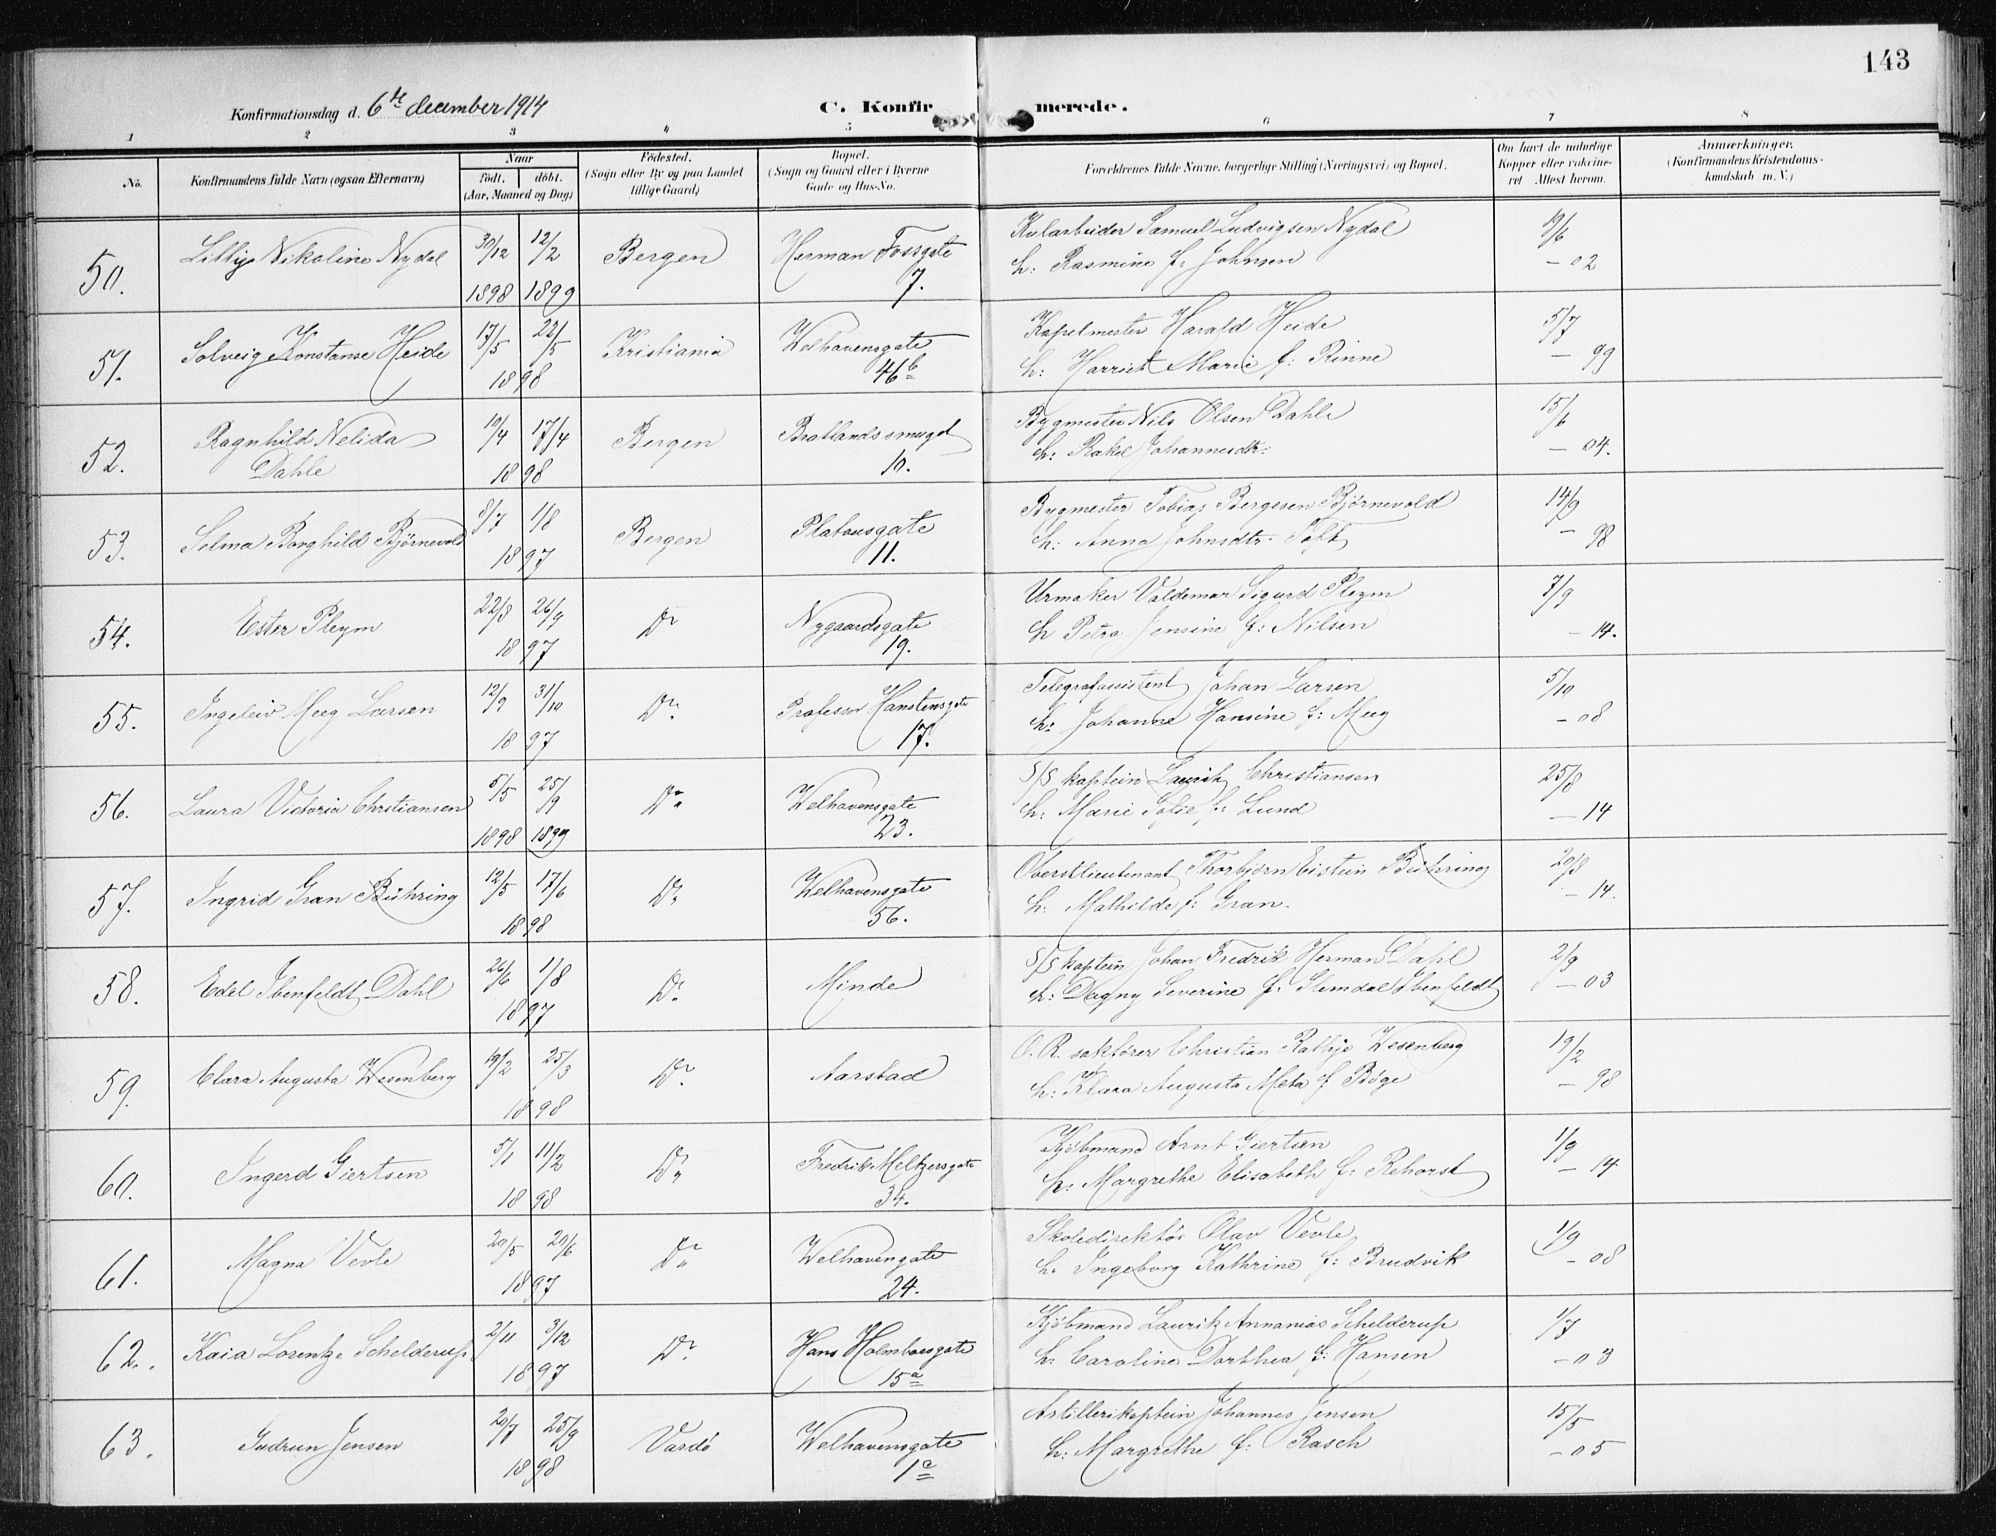 143
Konfirmationsdag d. 6te december 1914
C. Konfirmerede.
1 2 3 4 5 6 7 8
No.
Konfirmandens fulde Navn (ogsaa Efternavn)
Naar
født. døbt.
(Aar, Maaned og Dag)
Fødested.
(Sogn eller By og paa Landet
tillige Gaard)
Bopæl.
(Sogn og Gaard eller i Byerne
Gade og Hus-No.
Forældrenes fulde Navne, borgerlige Stilling (Næringsvei) og Bopæl.
Om havt de naturlige
Kopper eller vakcine-
ret Attest herom.
Anmærkninger.
(Konfirmandens Kristendoms-
kundskab m. V.)
50. Lilly Nikoline Nydal 30/12 1898 12/2 1899 Bergen Herman Fossgate 7.
Kularbeider Samuel Ludvigsen Nydal
h: Rasmine f: Johnsen
19/6 - 02
51. Solveig Konstanse Heide 17/5 22/5 1898 Kristiania Welhavensgate 46b
Kapelmester Harald Heide
h: Harriet Marie f: Rinne
5/7 - 99
52. Ragnhild Nelida
Dahle
10/4 17/4 1898 Bergen Bratlandssmuget 10.
Bygmester Nils Olsen Dahle
h: Rakel Johannesdtr:
15/6 - 04.
53. Selma Borghild Bjørnevold 8/7 1/8 1897 Bergen Platousgate 11.
Bygmester Tobias Bergesen Bjørnevold
h: Anna Johnsdtr. Toft
14/9 - 98
54. Ester Pleym 22/8 26/9 1897 Do Nygaardsgate 19.
Urmaker Valdemar Sigurd Pleym
h Petra Jensine f: Nilsen
7/9 - 14.
55. Ingeleiv Meeg Larsen 12/9 31/10 1897 Do Professor Hanstensgate 17.
Telegrafassistent Johan Larsen
h: Johanne Hansine f: Meeg
5/10 - 08
56. Laura Victoria Christiansen 5/5 1898 25/9 1899 Do Welhavensgate 23.
S/S kaptein Laurits Christiansen
h: Marie Sofie f: Lund
25/8 - 14
57. Ingrid Gran Bühring 12/5 17/6 1898 Do Welhavensgate 56.
Oberstlieutenant Thorbjørn Eistein Bühring
h: Mathilde f: Gran
20/8 - 14.
58. Edel Ibenfeldt Dahl 26/6 1/8 1897 Do Minde
S/S kaptein Johan Fredrik Herman Dahl
h: Dagny Severine f: Slemdal Ibenfeldt
2/9 - 03
59. Clara Augusta Wesenberg 19/2 25/3 1898 Do Aarstad
O. R. sakfører Christian Rathje Wesenberg
h: Klara Augusta Meta f Bøge
19/2 - 98
60. Ingerd Giertsen 5/1 11/2 1898 Do Fredrik Meltzersgate 34.
Kjøbmand Arnt Giertsen
h: Margrethe Elisabeth f: Rehorst
1/9 - 14
61. Magna Vevle 20/5 20/6 1897 Do Welhavengate 24.
Skoledirektør Olav Vevle
h. Ingeborg Kathrine f: Brudvik
1/9 - 08
62. Kaia Lorentze Schelderup 2/11 3/12 1897 Do Hans Holmboesgate 15a
Kjøbmand Lauritz Annanias Schelderup
h: Caroline Dorthea f: Hansen
1/7 - 03
63. Gudrun Jensen 20/7 25/9 1898 Vardø Welhavensgate 1c
Artillerikaptein Johannes Jensen
h: Margrethe f: Rasch
15/5 - 05